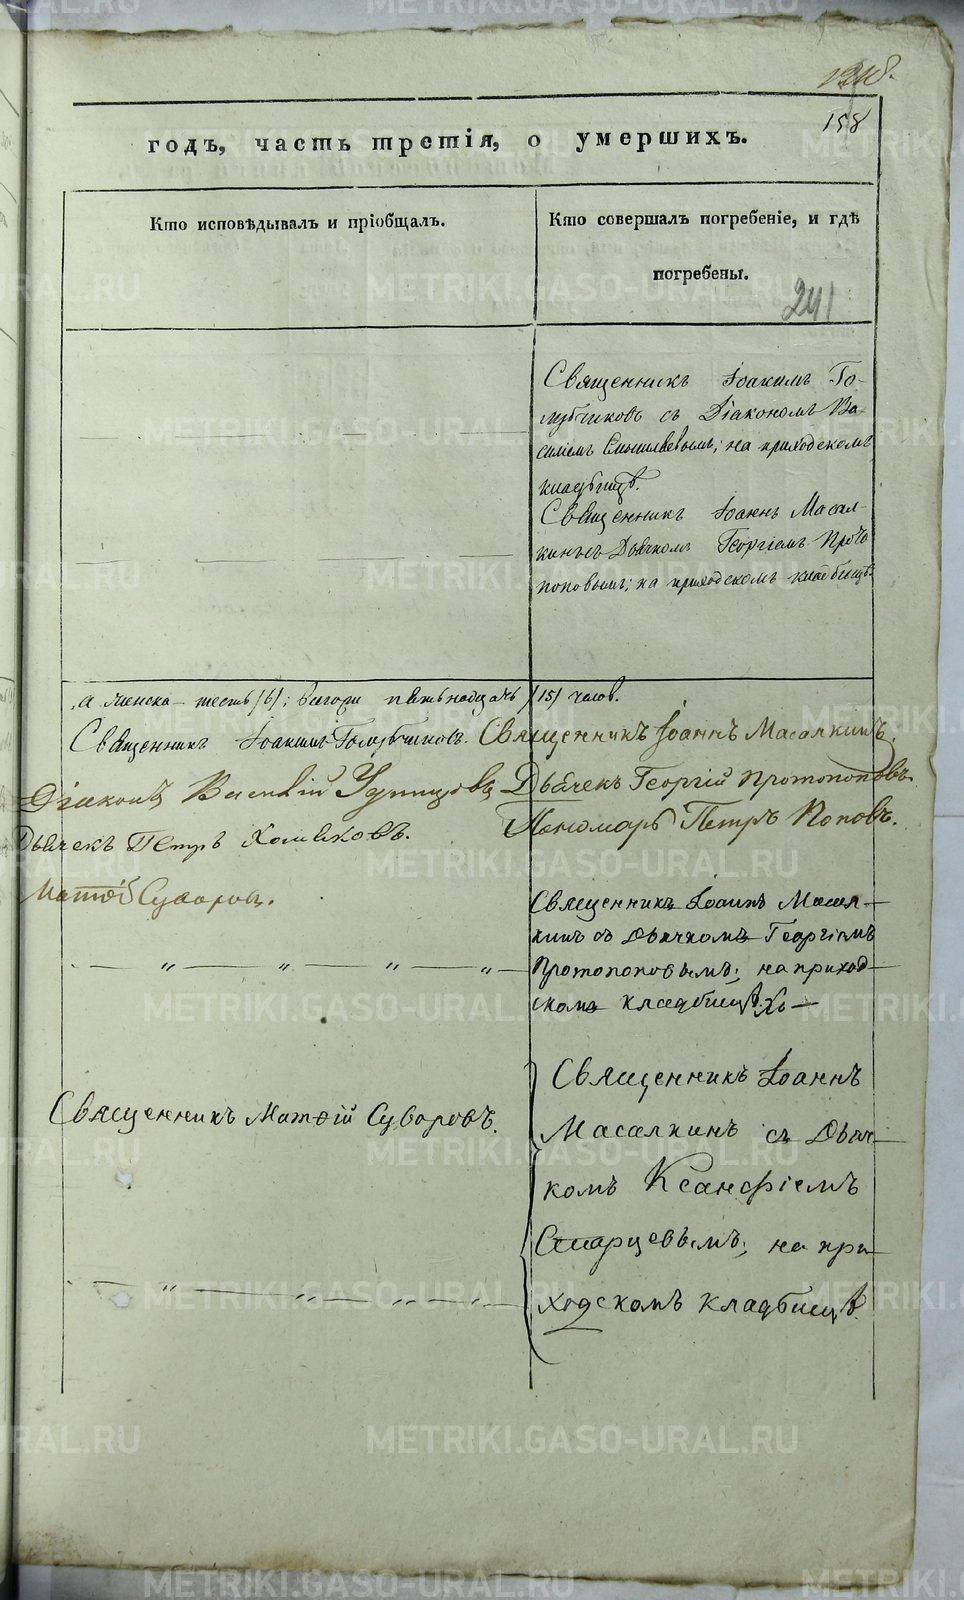 158
годъ, часть третія, о умершихъ.
Кто исповѣдывалъ и пріобщалъ.
Кто совершалъ погребеніе, и гдѣ
погребены.
241
Священникъ Іоакимъ Го-
лубчиковъ съ Діакономъ Ва-
силіемъ на приходскомъ
кладбищѣ.
Священникъ Іоаннъ Масал-
кинъ съ Дьячкомъ Георгіемъ Прото
поповымъ; на приходскомъ кладбищѣ
а женска шесть /6/; всего пятьнадцать /15/ челов.
Священникъ Іоакимъ Голубчиковъ. Священникъ Іоаннъ Масалкинъ.
Діаконъ Василій Дьячекъ Георгій Протопоповъ
Дьячекъ Петръ Хомяковъ. Пономарь Петръ Поповъ.
Матѳій Суворовъ.
Священникъ Іоаннъ Масал-
кинъ съ Дьячкомъ Георгіемъ
Протопоповымъ; на приход-
скомъ кладбищѣ.
Священникъ Матѳій Суворовъ.
Священникъ Іоаннъ
Масалкинъ съ Дьяч-
комъ Ксанфіемъ
Старцевымъ; на при-
ходскомъ кладбищѣ.
METRIKI.GASO-URAL.RU